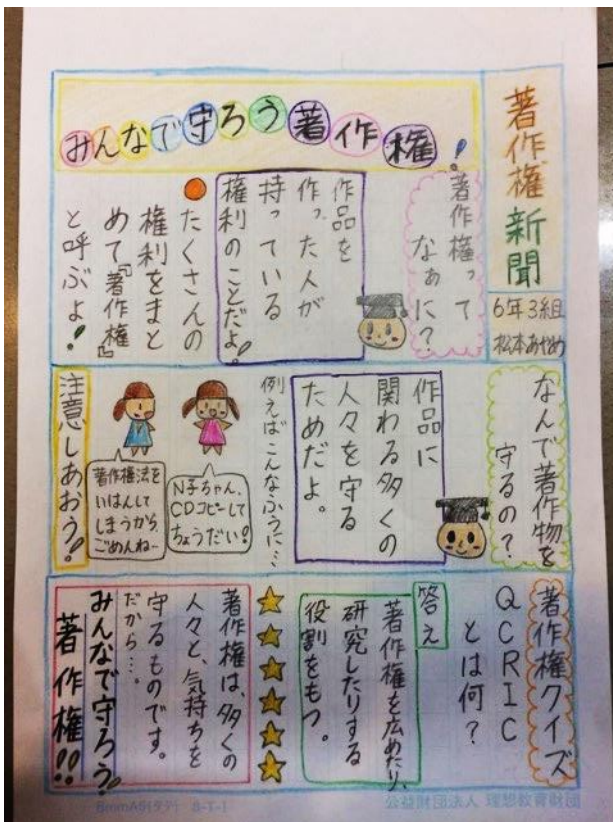 著作権新聞
6年3組
松本あやめ
みんなで守ろう著作権!
著作権って
なぁに?
作品を
作った人が
持っている
権利のことだよ!
たくさんの
権利をまと
めて『著作権』
と呼ぶよ!
なんで著作物を
守るの?
作品に
関わる多くの
人々を守る
ためだよ。
例えばこんなふうに…
N子ちゃん、
CDコピーして
ちょうだい!
著作権法を
いはんして
しまうから、
ごめんね~
注意しあおう!
著作権クイズ
QCRIC
とは何?
答え
著作権を広めたり、
研究したりする
役割をもつ。
著作権は、多くの
人々と、気持ちを
守るものです。
だから…。
みんなで守ろう!
著作権!!
8mmA5(タテ) 8-T-1
公益財団法人 理想教育財団